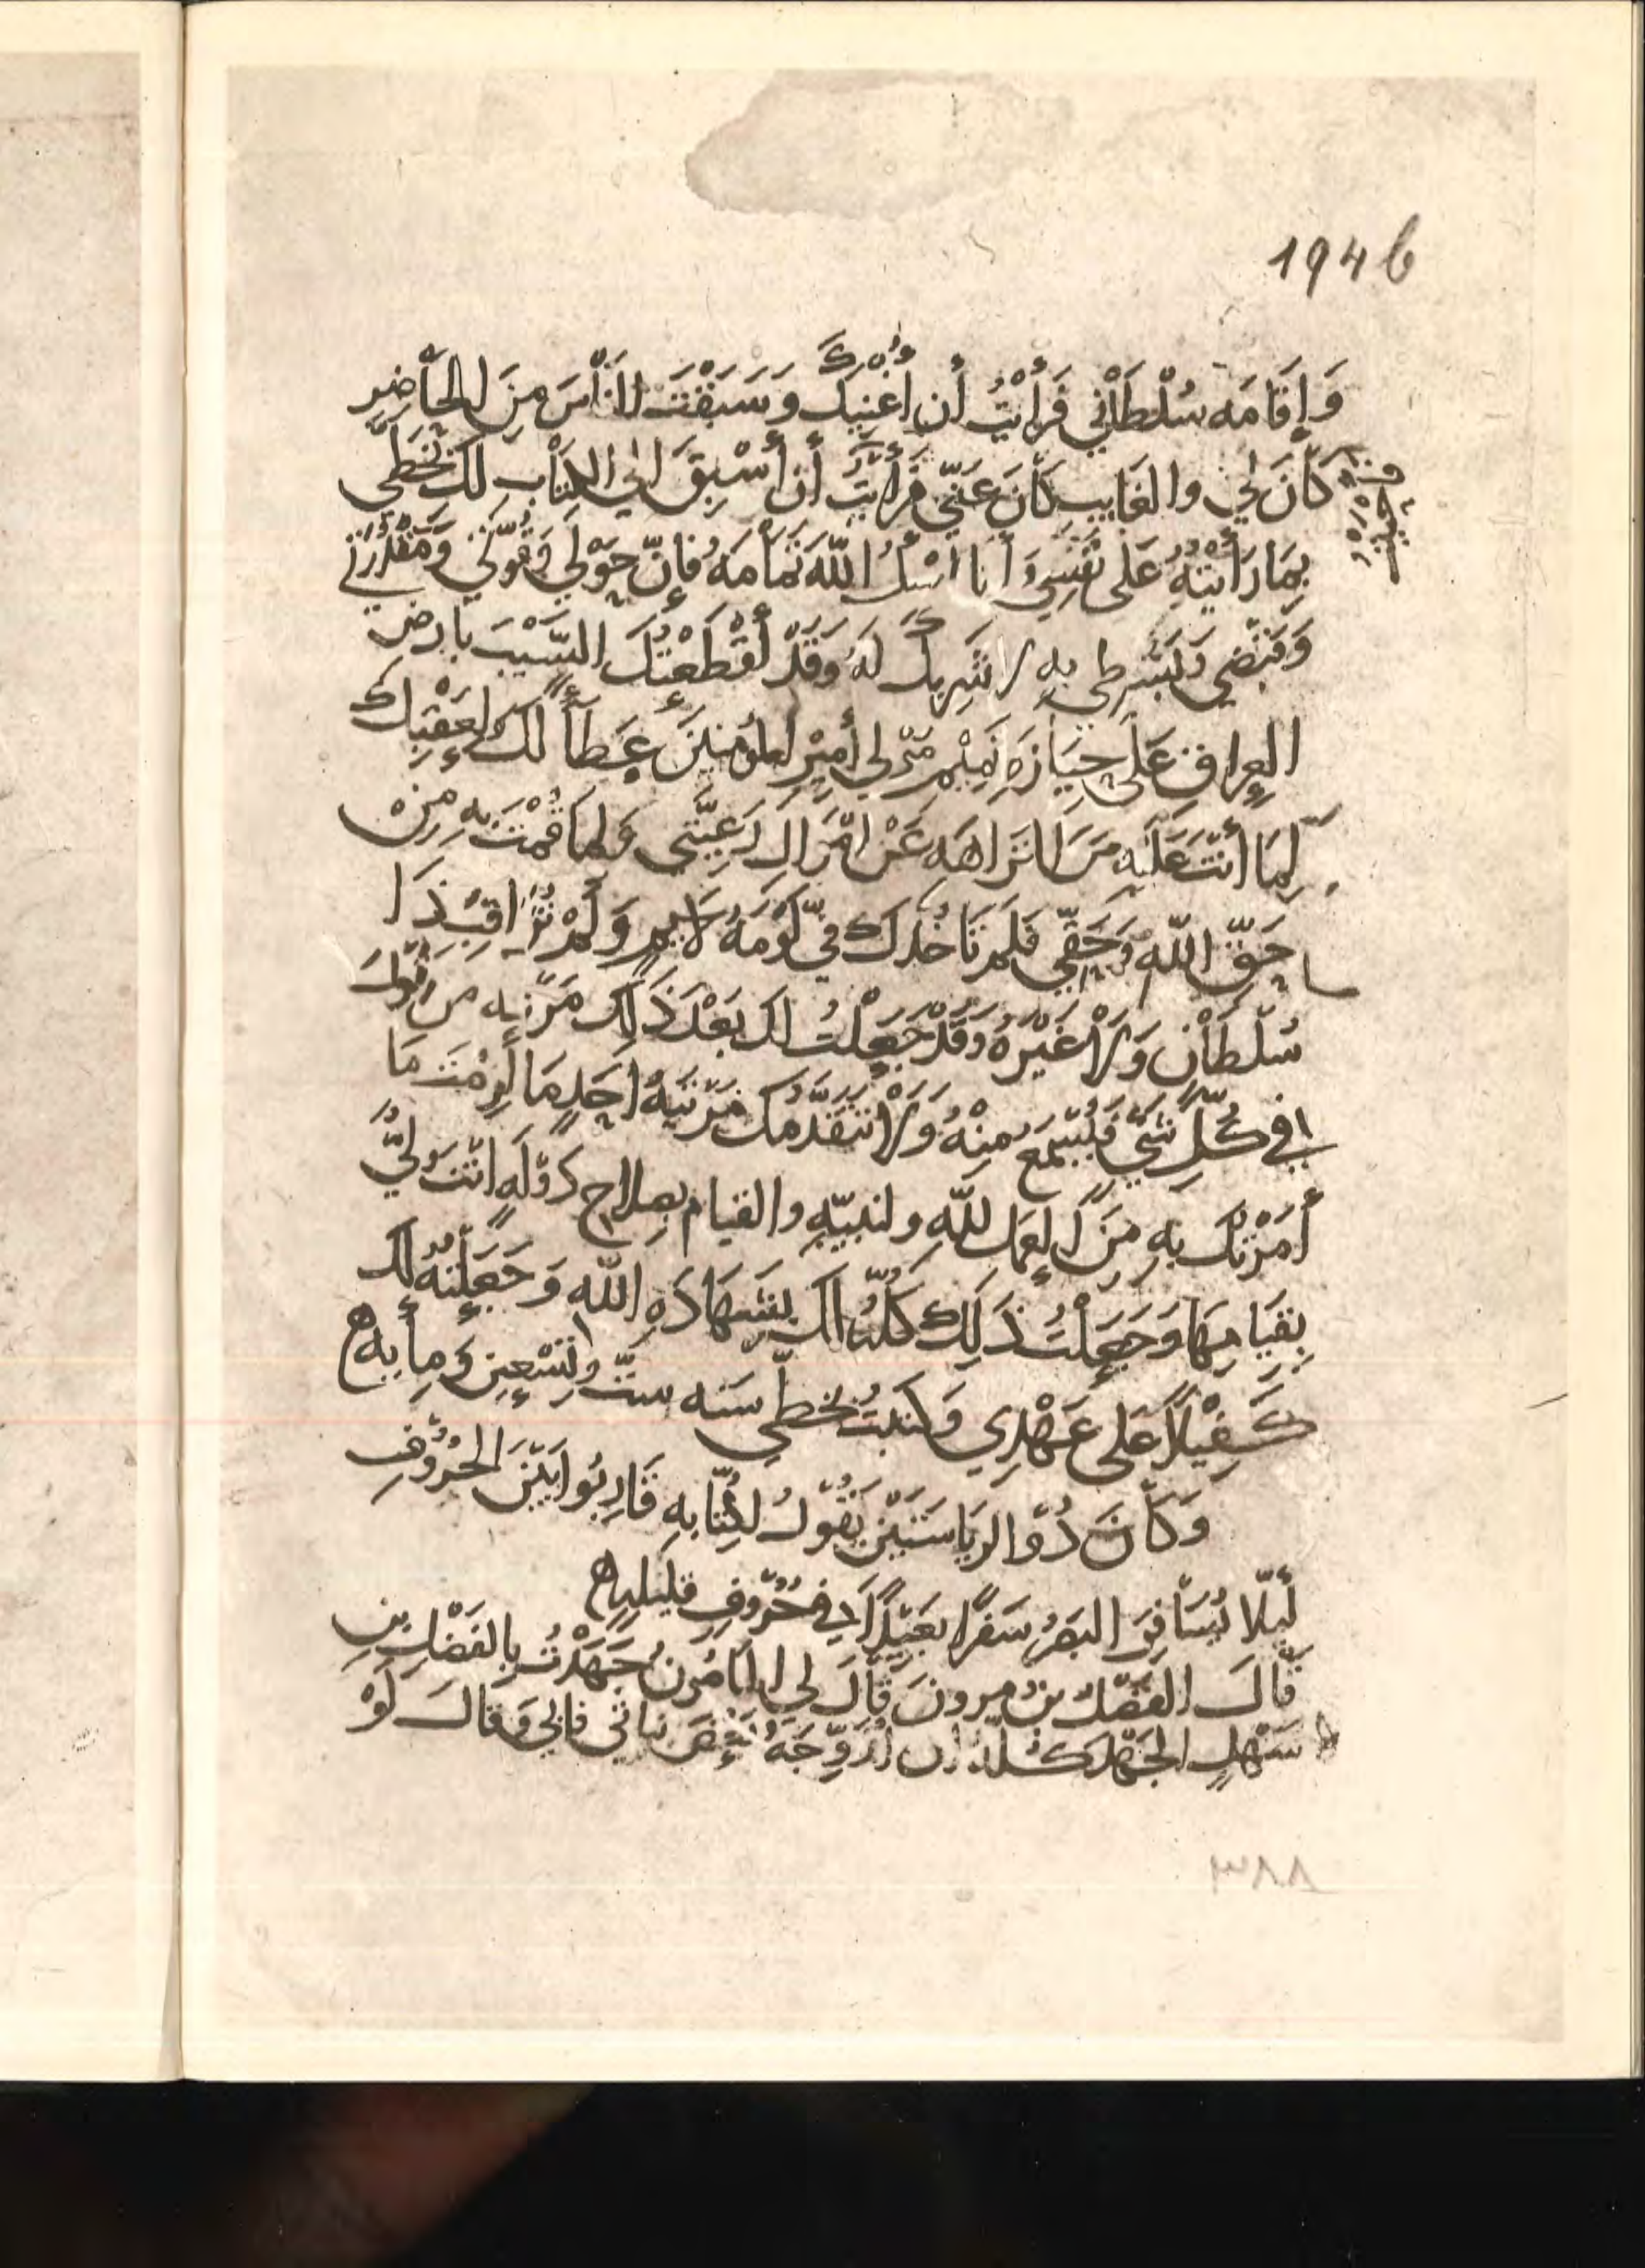 194b
وَإِقَامَه سُلْطَانْي فَرَأَيْتُ أن أُغنيَك وَسَبَقْتَ الناسَ مِنَ الحَاضِرِ
كَانَ لي والغايب كَانَ عَنّي فَرَأَيْتُ أن أَسْبِقَ الي الكتاب لك بخطي
بِمَا رَأَيْتهُ عَلى نَفْسِي وَأنا اسْئلُ اللّهَ تَمَامَهُ فَإِنّ حَوْلي وَقُوّتي وَمَقْدُرَتي
وَقَبْضي وَبَسْطي بِهِ لا شَرِيكَ لَهُ وَقَدْ أَقْطَعْتُكَ السَّيْبَ بأرض
العِراقِ عَلى حِيَازَهِ تَمِيْم مَوْلي أَمِيْرِ المؤْمنِيْنَ عَطَاً لَكَ ولِعَقِبِكَ
لِمَا أَنْتَ عَلَيْهِ مِنَ النزاهَه عَنْ امْوَالِ رَعِيَّتي وَلِمَا قُمْتَ بِهِ مِنْ
حَقّ اللّه وَحَقّي فَلَمْ تَأخُذكَ فيّ لَوْمَهُ لَايِمٍ وَلَمْ تُرَاقِبْ ذَا
سُلْطَانٍ وَلا غَيْرَهُ وَقَدْ جَعَلْتُ لك بَعْدَ ذَلِكَ مَرْتبه مَن يَقُولُ
في كُلّ شَيّ فَيُسْمَعُ مِنْهُ وَلا تَتَقَدَّمُك مَرْتَبَهُ احَدٍ مَا لَزِمْتَ مَا
أَمَرْتُكَ بِهِ مِنَ العَمَلِ للّهِ ولنبيّهِ والقيام بصلاح دَوْلَهٍ انْتَ وَليُّ
بِقيَامِهَا وَجَعَلْتُ ذَلِكَ كُلّهُ لك بشَهَادَهِ اللّه وَجَعَلْتُهُ لَكَ
كَفِيْلاً عَلى عَهْدِي وَكتبْتُ بخطّي سَنه ستّ وَتِسْعِين وَمِأيه ه
وَكَانَ ذُوْ الرِيَاسَتَيْنِ يَقُوْلُ لِكُتّابِهِ قَارِبُوا بَيْنَ الحُرُوْفِ
لَيلّا يُسَافِرَ البَصَرُ سَفَرًا بَعَيْدًا في حُرُوْفٍ قَلِيلِهٍ ه
قَالَ الفَضْل بنُ مرون قَالَ لي المأمُونُ جَهَدْتُ بِالفَضْلِ بنِ
سَهْلٍ الجَهْدَ كُلَّهُ ان أُزَوِّجَهُ بَعْضَ بَنَاتي فابي وَقالَ لَوْ
٣٨٨